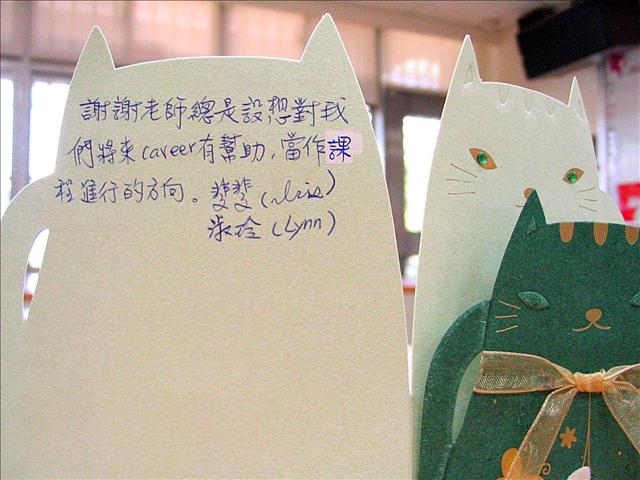 謝謝老師總是設想對我
們將來career有幫助，當作課
程進行的方向。斐斐(Iris)
淑玲(Lynn)